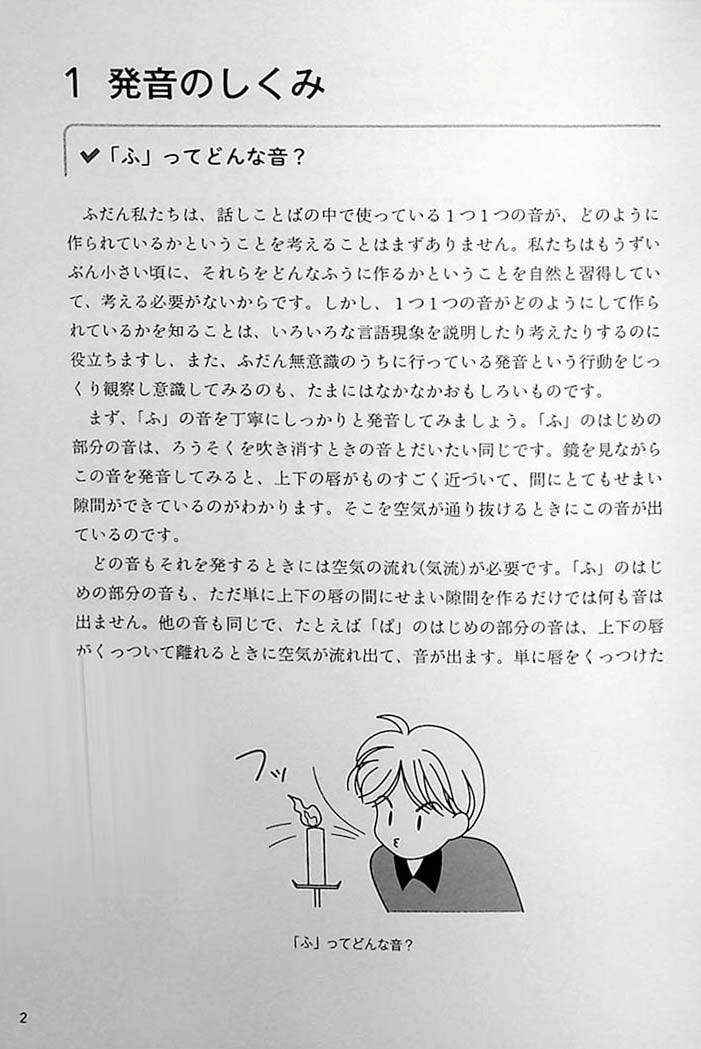 1 発音のしくみ
「ふ」ってどんな音？
ふだん私たちは、話しことばの中で使っている１つ１つの音が、どのように
作られているかということを考えることはまずありません。私たちはもうずい
ぶん小さい頃に、それらをどんなふうに作るかということを自然と習得してい
て、考える必要がないからです。しかし、１つ１つの音がどのようにして作ら
れているかを知ることは、いろいろな言語現象を説明したり考えたりするのに
役立ちますし、また、ふだん無意識のうちに行っている発音という行動をじっ
くり観察し意識してみるのも、たまにはなかなかおもしろいものです。
まず、「ふ」の音を丁寧にしっかりと発音してみましょう。「ふ」のはじめの
部分の音は、ろうそくを吹き消すときの音とだいたい同じです。鏡を見ながら
この音を発音してみると、上下の唇がものすごく近づいて、間にとてもせまい
隙間ができているのがわかります。そこを空気が通り抜けるときにこの音が出
ているのです。
どの音もそれを発するときには空気の流れ(気流)が必要です。「ふ」のはじ
めの部分の音も、ただ単に上下の唇の間にせまい隙間を作るだけでは何も音は
出ません。他の音も同じで、たとえば「ぱ」のはじめの部分の音は、上下の唇
がくっついて離れるときに空気が流れ出て、音が出ます。単に唇をくっつけた
フッ
「ふ」ってどんな音？
2